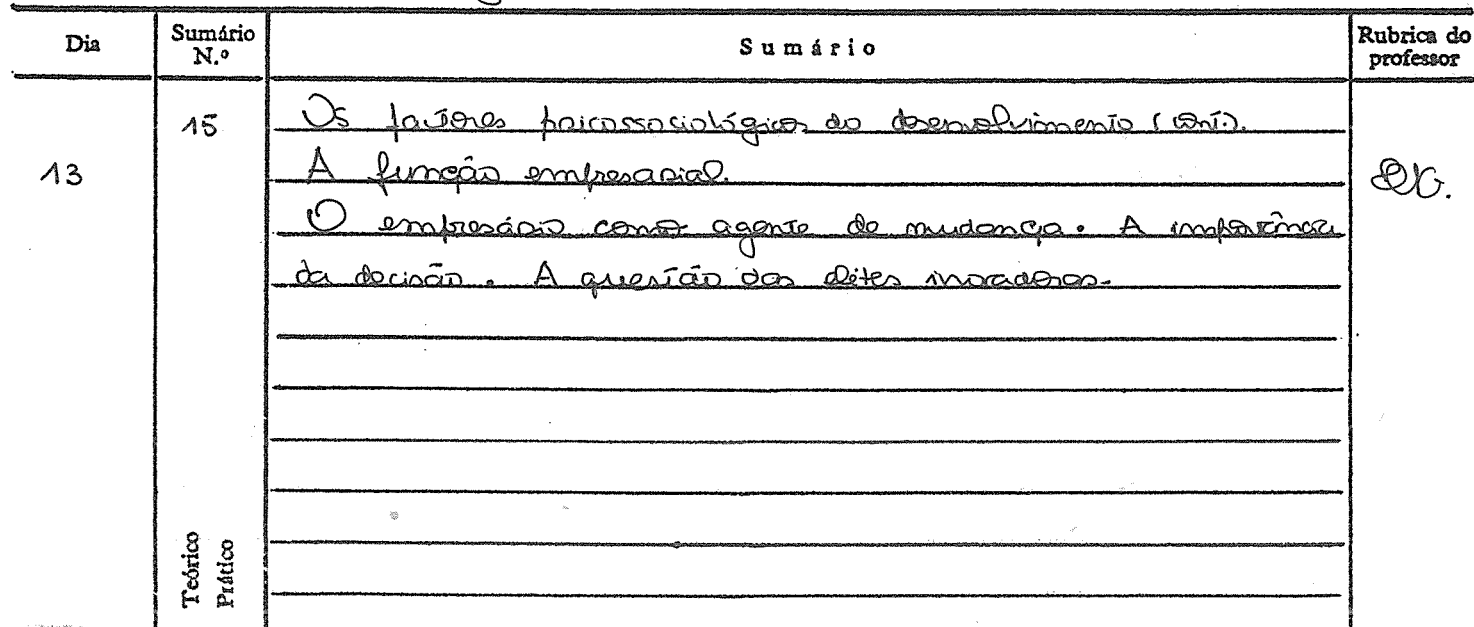 Dia
Sumário N.º
Sumário
Rubrica do professor
15
Os factores psicossociológicos do desenvolvimento (cont.).
13
A função empresarial.
O empresário como agente de mudança. A importância
da decisão. A questão das elites inovadoras.
Teórico
Prático